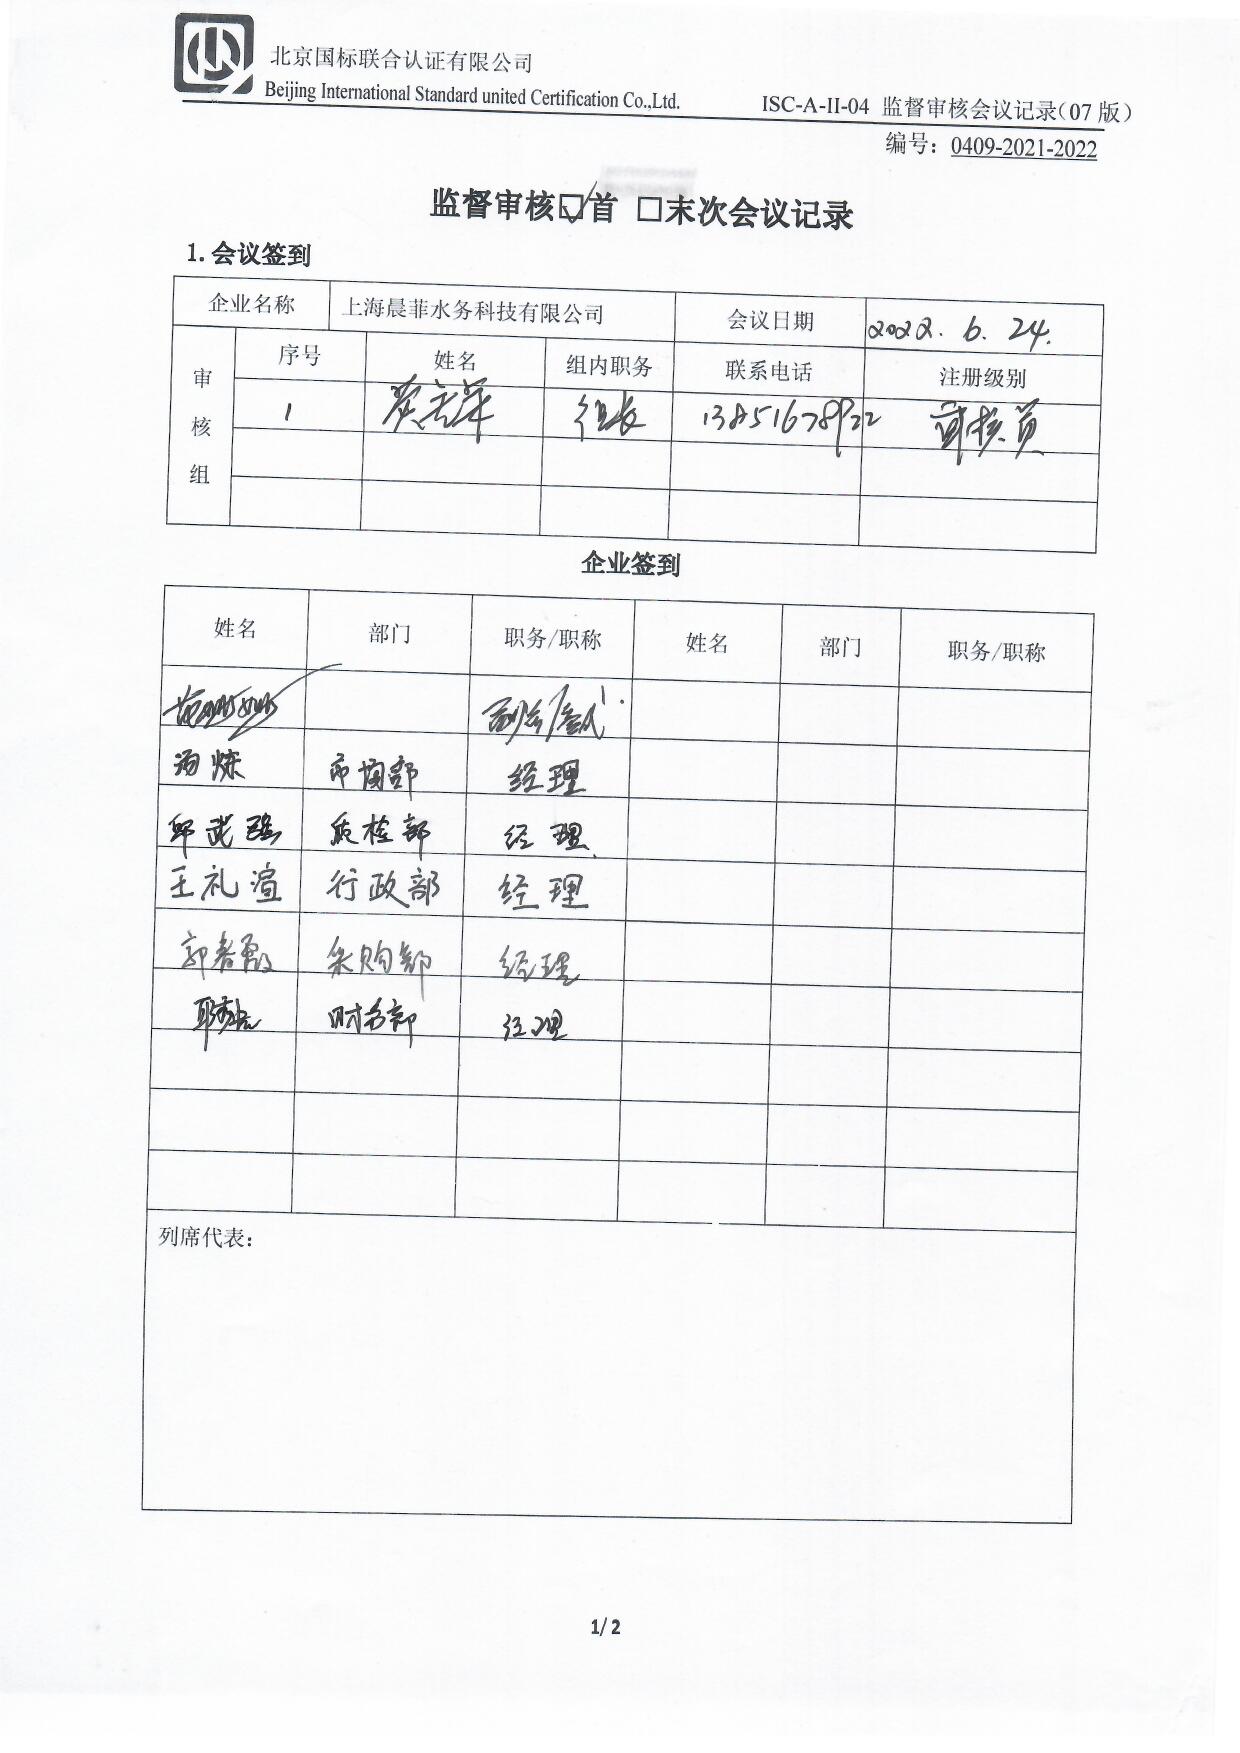 北京国标联合认证有限公司
Beijing International Standard united Certification Co.,Ltd.
ISC-A-II-04 监督审核会议记录(07版)
编号：0409-2021-2022
监督审核☑首 □末次会议记录
1.会议签到
企业名称 上海晨菲水务科技有限公司 会议日期 2022.6.24.
审核组 序号 姓名 组内职务 联系电话 注册级别
1 组长 13851678922 审核员
企业签到
姓名 部门 职务/职称 姓名 部门 职务/职称
汤炼 市场部 经理
邱武强 质检部 经理
王礼渲 行政部 经理
郭春霞 采购部 经理
财务部 经理
列席代表：
1/2